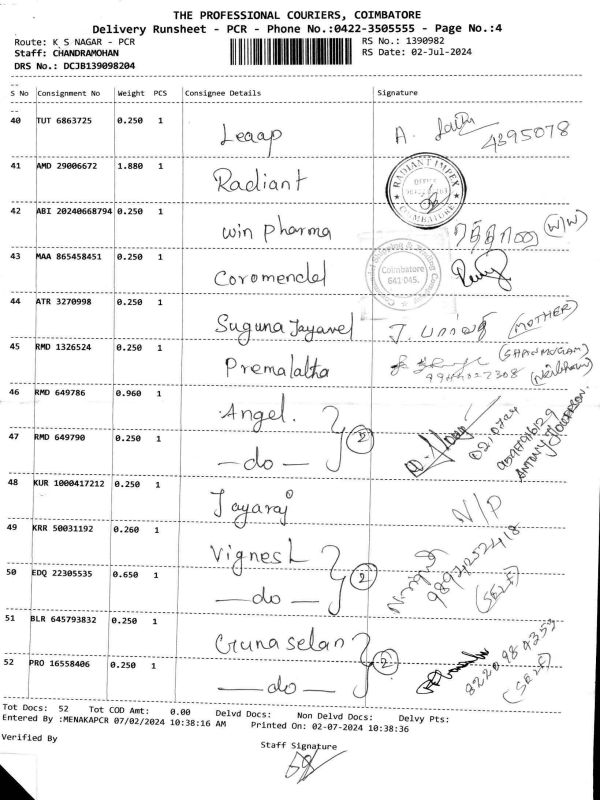 THE PROFESSIONAL COURIERS, COIMBATORE
Delivery Runsheet - PCR - Phone No.:0422-3505555 - Page No.:4
Route: K S NAGAR - PCR
RS No.: 1390982
Staff: CHANDRAMOHAN
RS Date: 02-Jul-2024
DRS No.: DCJB139098204
S No Consignment No Weight PCS Consignee Details Signature
40 TUT 6863725 0.250 1 Leaap A. 4395078
41 AMD 29006672 1.880 1 Radiant RADIANT IMPEX OFFICE COIMBATORE
42 ABI 20240668794 0.250 1 win pharma (W/W)
43 MAA 865458451 0.250 1 Coromendel Coimbatore 641 045.
44 ATR 3270998 0.250 1 Suguna Jayavel J. பார்வதி (MOTHER)
45 RMD 1326524 0.250 1 Premalatha (SHANMUGAM)
46 RMD 649786 0.960 1 Angel. 2
47 RMD 649790 0.250 1 —do—
48 KUR 1000417212 0.250 1 Jayaraj N/P
49 KRR 50031192 0.260 1 Vignesh 2
50 EDQ 22305535 0.650 1 —do— (SELF)
51 BLR 645793832 0.250 1 Gunaselan 2
52 PRO 16558406 0.250 1 —do— (SELF)
Tot Docs: 52 Tot COD Amt: 0.00 Delvd Docs: Non Delvd Docs: Delvy Pts:
Entered By :MENAKAPCR 07/02/2024 10:38:16 AM Printed On: 02-07-2024 10:38:36
Verified By
Staff Signature